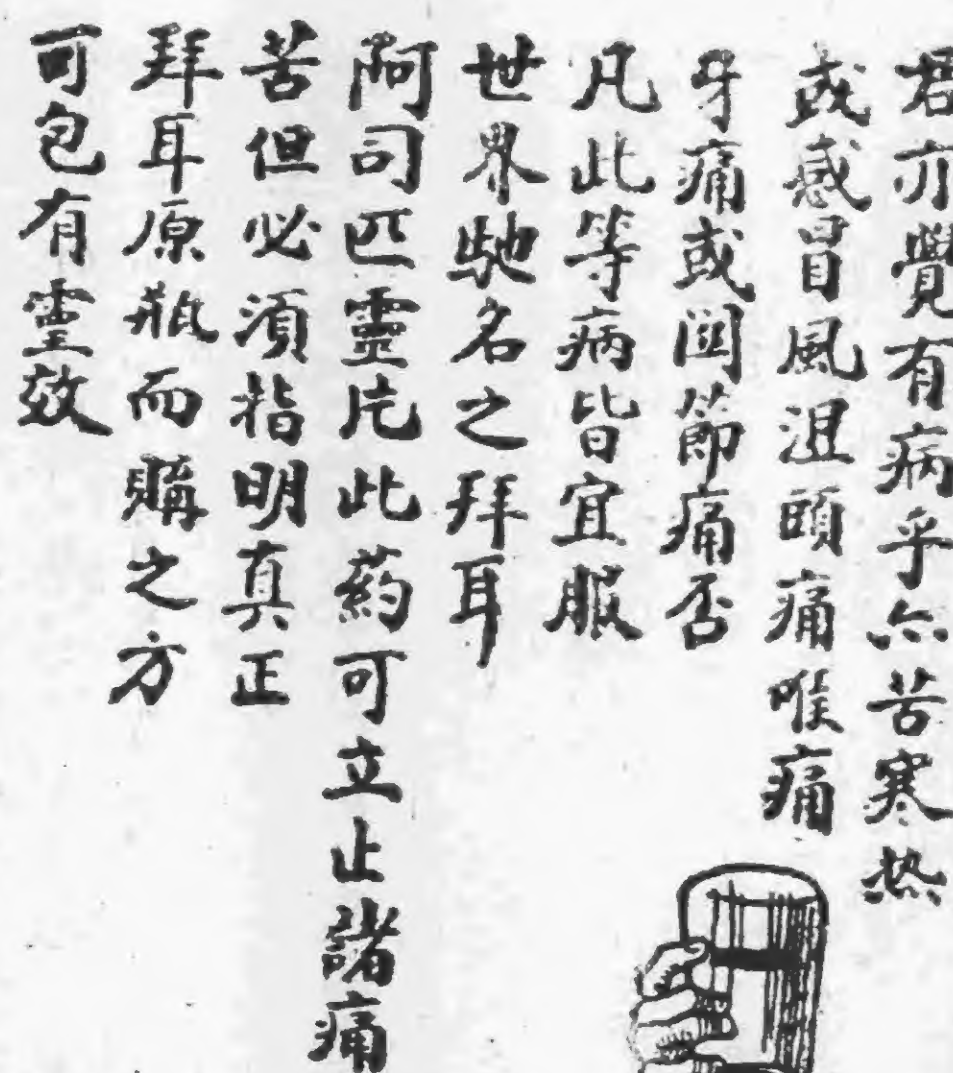 君亦覺有病乎亦苦寒热
或感冒風溼頭痛喉痛
牙痛或関節痛否
凡此等病皆宜服
世界馳名之拜耳
阿司匹靈片此药可立止諸痛
苦但必須指明真正
拜耳原瓶而購之方
可包有靈效